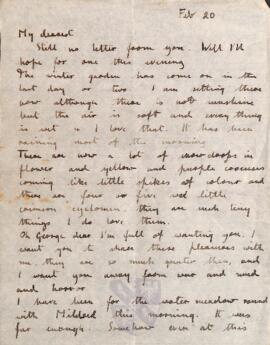 Feb 20
My dearest
Still no letter from you. Well I'll
hope for one this evening
The winter garden has come on in the
last day or two. I am sitting there
now although there is not sunshine
but the air is soft and everything
is wet & I love that. It has been
raining most of the morning
There are now a lot of snowdrops in
flower and yellow and purple crocuses
coming like little spikes of colour and
there are four or five red little
cyclamen they are such tiny
things I do love them.
Oh George dear I'm full of wanting you. I
want you to share these pleasures with
me they are so much greater then, and
I want you away from war and mud
and horror
I have been for the water meadow round
with Mildred this morning. It was
far enough. Somehow even at this